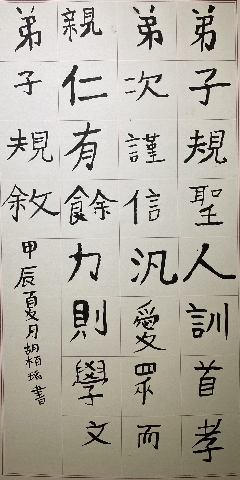 弟子規聖人訓首孝
弟次謹信汎愛眾而
親仁有餘力則學文
弟子規敘
甲辰夏月胡書